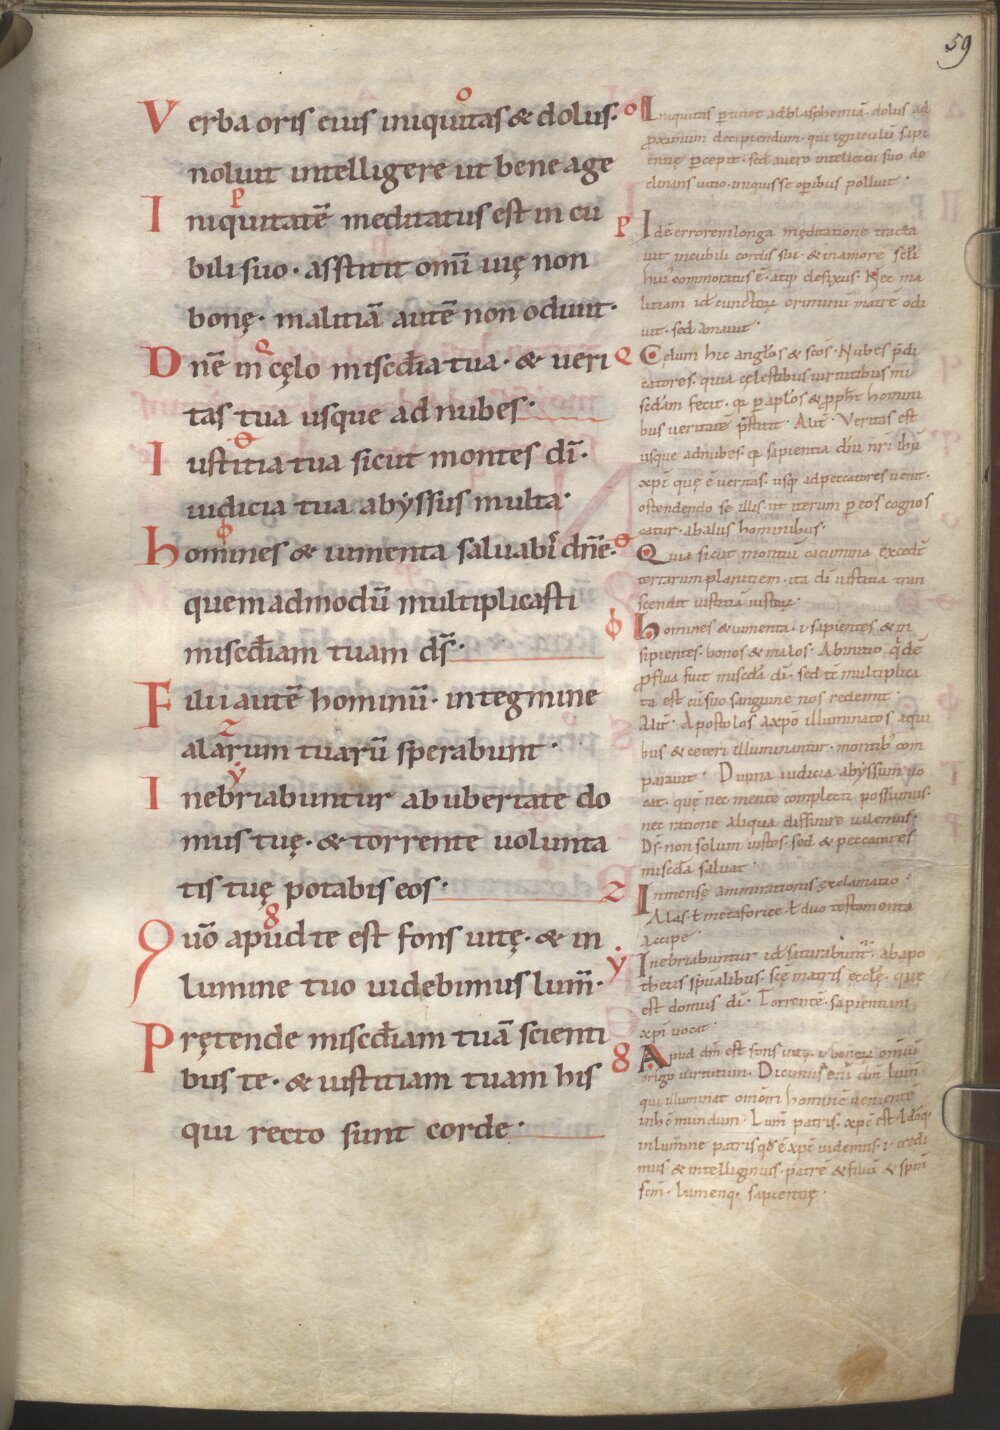 59
Verba oris eius iniquitas & dolus·
noluit intelligere ut bene age
Iniquitatē meditatus est in cu
bili suo· asstitit omī uię non
bonę· malitiā autē non odiuit·
Dnē in cęlo misc̄dia tua· & ueri
tas tua usque ad nubes·
Iustitia tua sicut montes dī·
iudicia tua abyssus multa·
Homines & iumenta saluabi᷒ dn̄e·
quemadmodū multiplicasti
misc̄diam tuam ds̄·
Filii autē hominū· in tegmine
alarum tuarū sperabunt·
Inebriabuntur ab ubertate do
mus tuę· & torrente uolunta
tis tuę potabis eos·
Quō apud te est fons uitę· & in
lumine tuo uidebimus lum̄·
Prętende misc̄diam tuā scienti
bus te· & iustitiam tuam his
qui recto sunt corde·
o Iniquitas ptinet ad blasphemiā· dolus ad
proximum decipiendum· qui igniculū sapi
entię pcepit· sed a uero intellectu suo de
clinans uitio· iniquis se opibus polluit·
p Idē errorem longa meditatione tracta
uit in cubili cordis sui· & in amore sc̄li
hui᷒ commoratus ē· atq; defixus· Nec ma
litiam id cunctoꝝ criminum matrē odi
uit· sed amauit·
Q Cęlum hic anglos & sc̄os· Nubes p̄di
catores· quia cęlestibus uirtutibus mi
sc̄dam fecit· qr p aplos & propht̄ homini
bus ueritatē p̄stitit· Alit̄· Veritas est
usque ad nubes· qr sapientia dn̄i nr̄i ihū
xp̄i quę ē ueritas· usq; ad peccatores uenit·
ostendendo se illis· ut iterum p eos cognos
catur· ab aliis hominibus·
Quia sicut montiū cacumina excedt̄
terrarum planitiem· ita dī iustitia tran
scendit iustitiā iustoꝝ·
ϕ Homines & iumenta· i· sapientes & in
sipientes· bonos & malos· Ab initio q̄dē
proflua fuit misc̄da dī· sed tē multiplica
ta est cū suo sanguine nos redemit·
Alit̄· Apostolos a xp̄o illuminatos a qui
bus & ceteri illuminantur· montib; com
parauit· Diuina iudicia abyssum uo
cat· quę nec mente complecti possumus·
nec ratione aliqua diffinire ualemus·
Ds̄· non solum iustos· sed & peccatores
misc̄da saluat·
Inmensę ammirationis exclamatio·
Alas· ł metaforice· ł duo testamenta
accipe·
y Inebriabuntur id saturabunt̄· ab apo
thecis sp̄ualibus· sc̄ę matris eccłę· quę
est domus dī· Torrentē· sapientiam
xp̄i uocat·
8 Apud dm̄ est fons uitę· i· bonoꝝ omiū
origo uirtutum· Dicimus enī dm̄ lum̄·
qui illuminat omnem hominē uenientē
in hc̄ mundum· Lum̄ patris· xpc̄ est·
in lumine patris qd̄ ē xpc̄ uidemus· i· credi
mus· & intelligimus· patrē & filiū & spm̄
scm̄· lumenq; sapientię·